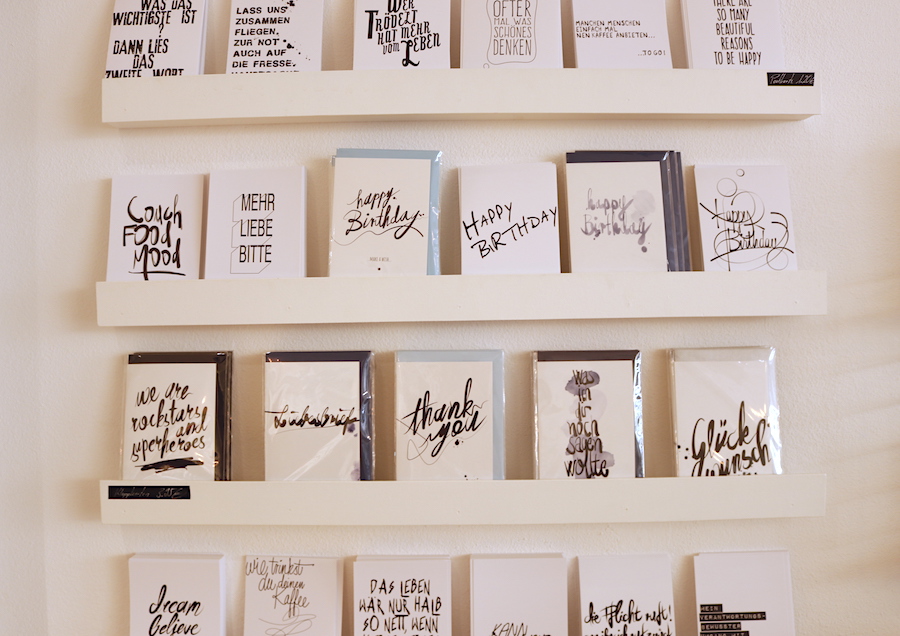 WAS DAS
WICHTIGSTE IST
?
DANN LIES
DAS
ZWEITE WORT
LASS UNS
ZUSAMMEN
FLIEGEN,
ZUR NOT
AUCH AUF
DIE FRESSE.
WER
TRÖDELT
HAT MEHR
VOM LEBEN
ÖFTER
MAL WAS
SCHÖNES
DENKEN
MANCHEN MENSCHEN
EINFACH MAL
NEN KAFFEE ANBIETEN...
...JO GO!
THERE ARE
SO MANY
BEAUTIFUL
REASONS
TO BE HAPPY
Couch
FOOD
Mood
MEHR
LIEBE
BITTE
happy
Birthday
HAPPY
BIRTHDAY
happy
Birthday
Happy
Birthday
we are
rockstars
and
superheroes
Liebesbrief
thank
you
Was
ich
dir
noch
sagen
wollte
Glück
wunsch
dream
believe
Wie trinkst
du deinen
Kaffee
DAS LEBEN
WÄR NUR HALB
SO NETT, WENN
die Pflicht ruft!
MEIN
VERANTWORTUNGS-
BEWUSSTER